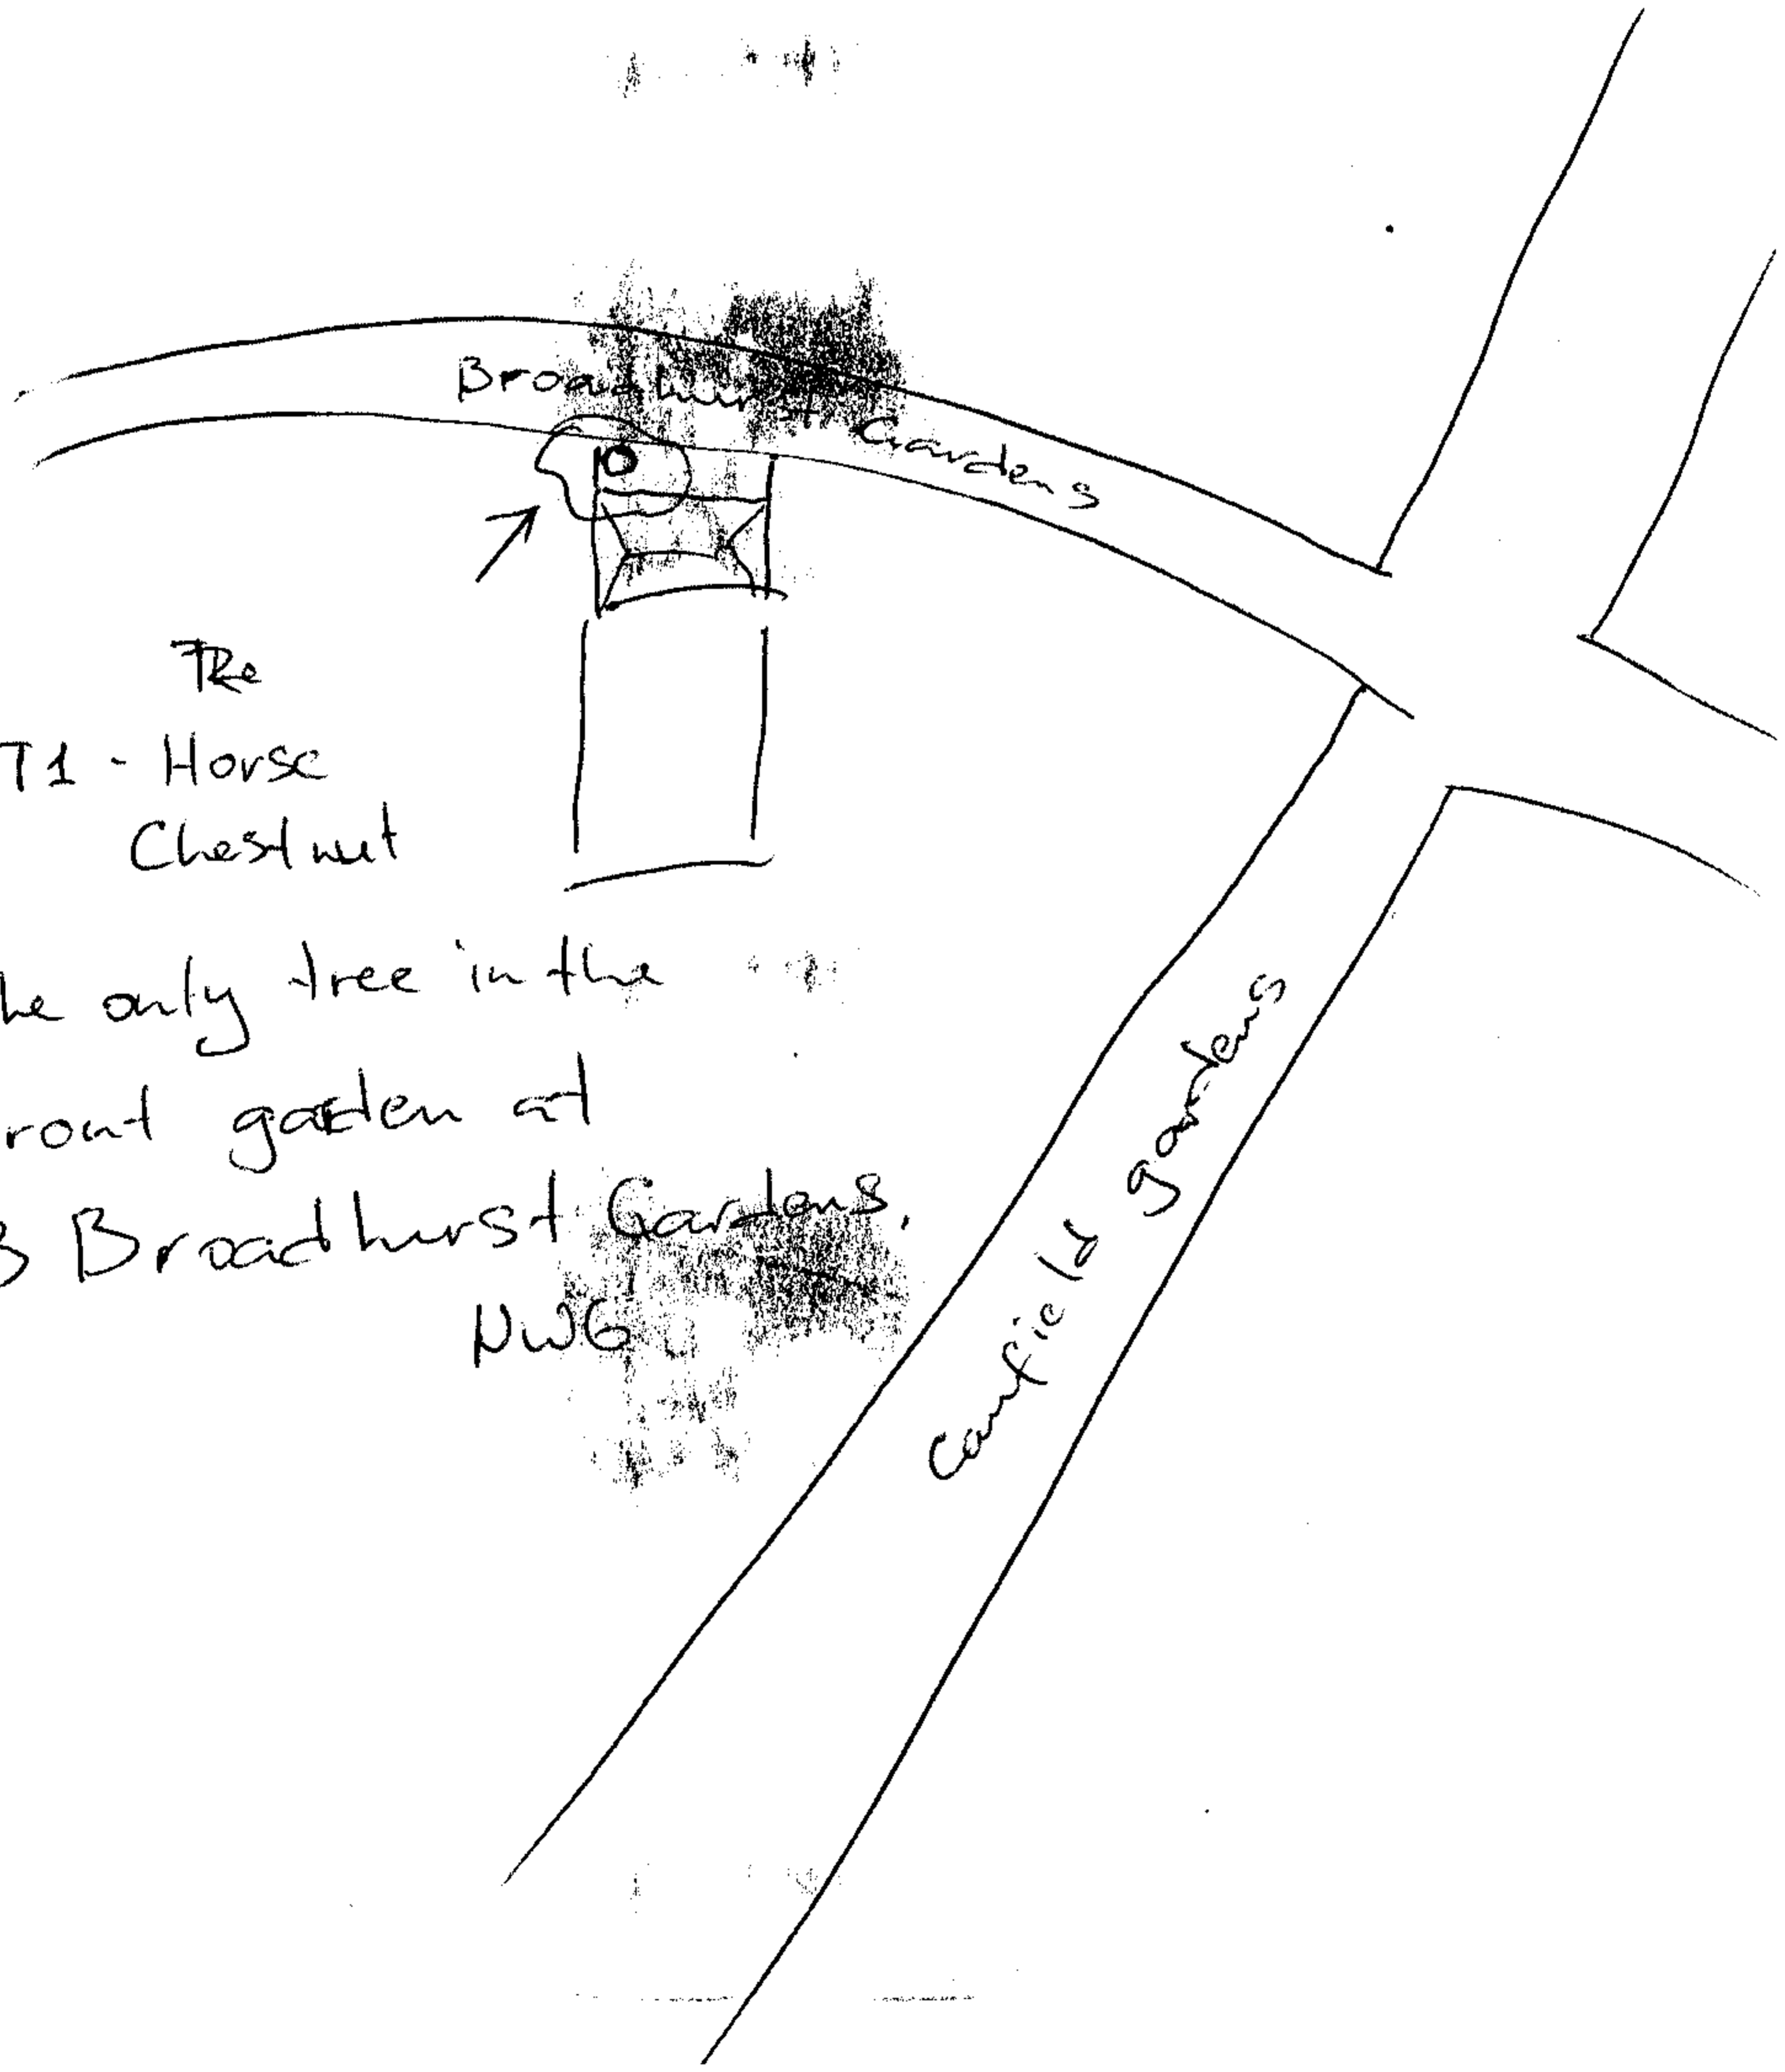 Broadhurst Gardens
The
T1 - Horse
Chestnut
he only tree in the
ront garden at
3 Broadhurst Gardens,
NW6
Canfield gardens